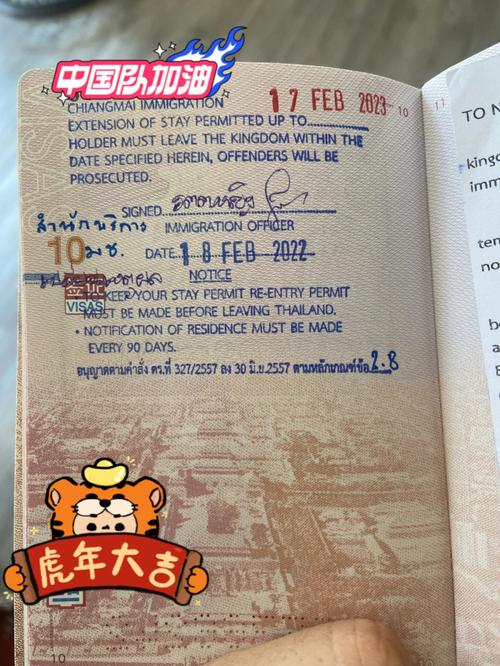 中国队加油
CHIANGMAI IMMIGRATION 17 FEB 2023 10
EXTENSION OF STAY PERMITTED UP TO
HOLDER MUST LEAVE THE KINGDOM WITHIN THE
DATE SPECIFIED HEREIN, OFFENDERS WILL BE
PROSECUTED.
SIGNED
สำนักบริการ IMMIGRATION OFFICER
10 มช. DATE 18 FEB 2022
NOTICE
签证
VISAS
TO KEEP YOUR STAY PERMIT RE-ENTRY PERMIT
MUST BE MADE BEFORE LEAVING THAILAND.
• NOTIFICATION OF RESIDENCE MUST BE MADE
EVERY 90 DAYS.
อนุญาตตามคำสั่ง ตร.ที่ 327/2557 ลง 30 มิ.ย.2557 ตามหลักเกณฑ์ข้อ 2.8
虎年大吉
10
11
TO
kingd
imm
tem
no